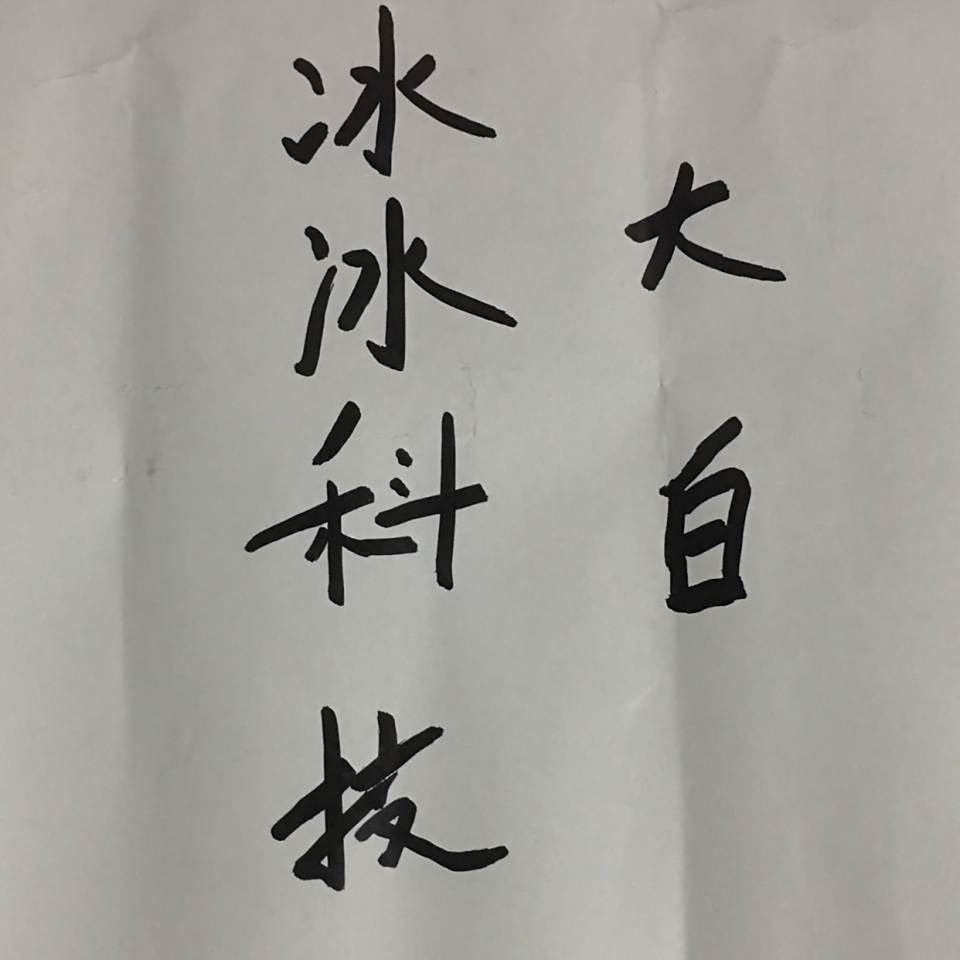 大白
冰冰科技